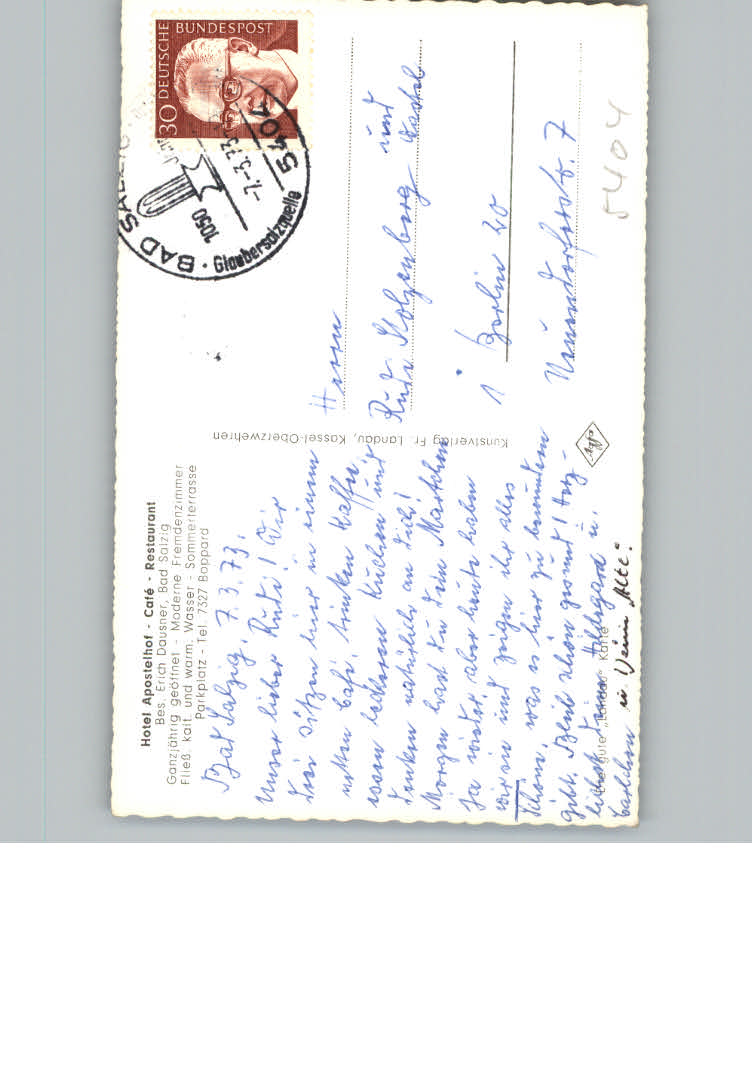 Hotel Apostelhof - Café - Restaurant
Bes. Erich Dausner, Bad Salzig
Ganzjährig geöffnet - Moderne Fremdenzimmer
Fließ. kalt. und warm. Wasser - Sommerterrasse
Parkplatz - Tel. 7327 Boppard
Bad Salzig, 7.3.73.
Unser lieber Rudi! Wir
drei sitzen hier in einem
netten Café, trinken Kaffee,
essen leckeren Kuchen und
denken natürlich an Dich!
Morgen hast Du Dein Mariechen
ja wieder, aber heute haben
wir sie und zeigen ihr alles
Schöne, was es hier zu bewundern
gibt. Bleib schön gesund! Herz-
lichst Deine Hildegard u.
u. Deine Alte!
Eine gute „Landau" Karte
Kunstverlag Fr. Landau, Kassel-Oberzwehren
Agfa
DEUTSCHE BUNDESPOST
30
5404 BAD SALZIG
-7.-3.73
1050
Glaubersalzquelle
Herrn
Rudi Stolzenburg und
1 Berlin 20
Neuendorferstr. 7
5404